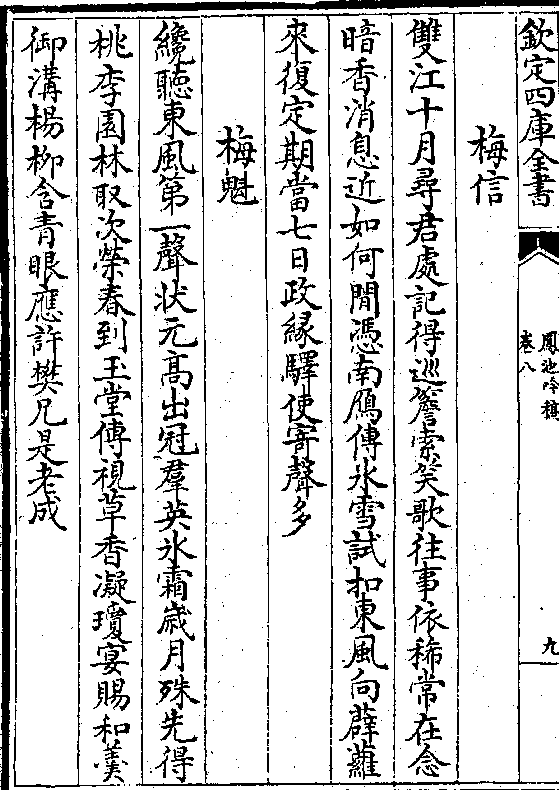 欽定四庫全書
鳳池吟稿
卷八
九
梅信
雙江十月尋君處記得巡簷索笑歌往事依稀常在念
暗香消息近如何閒憑南鴈傳氷雪試扣東風向薜蘿
來復定期當七日政緣驛使寄聲多
梅魁
纔聽東風第一聲狀元髙出冠羣英氷霜歳月殊先得
桃李園林取次榮春到玉堂傳視草香凝瓊宴賜和羮
御溝楊柳含青眼應許樊兄是老成